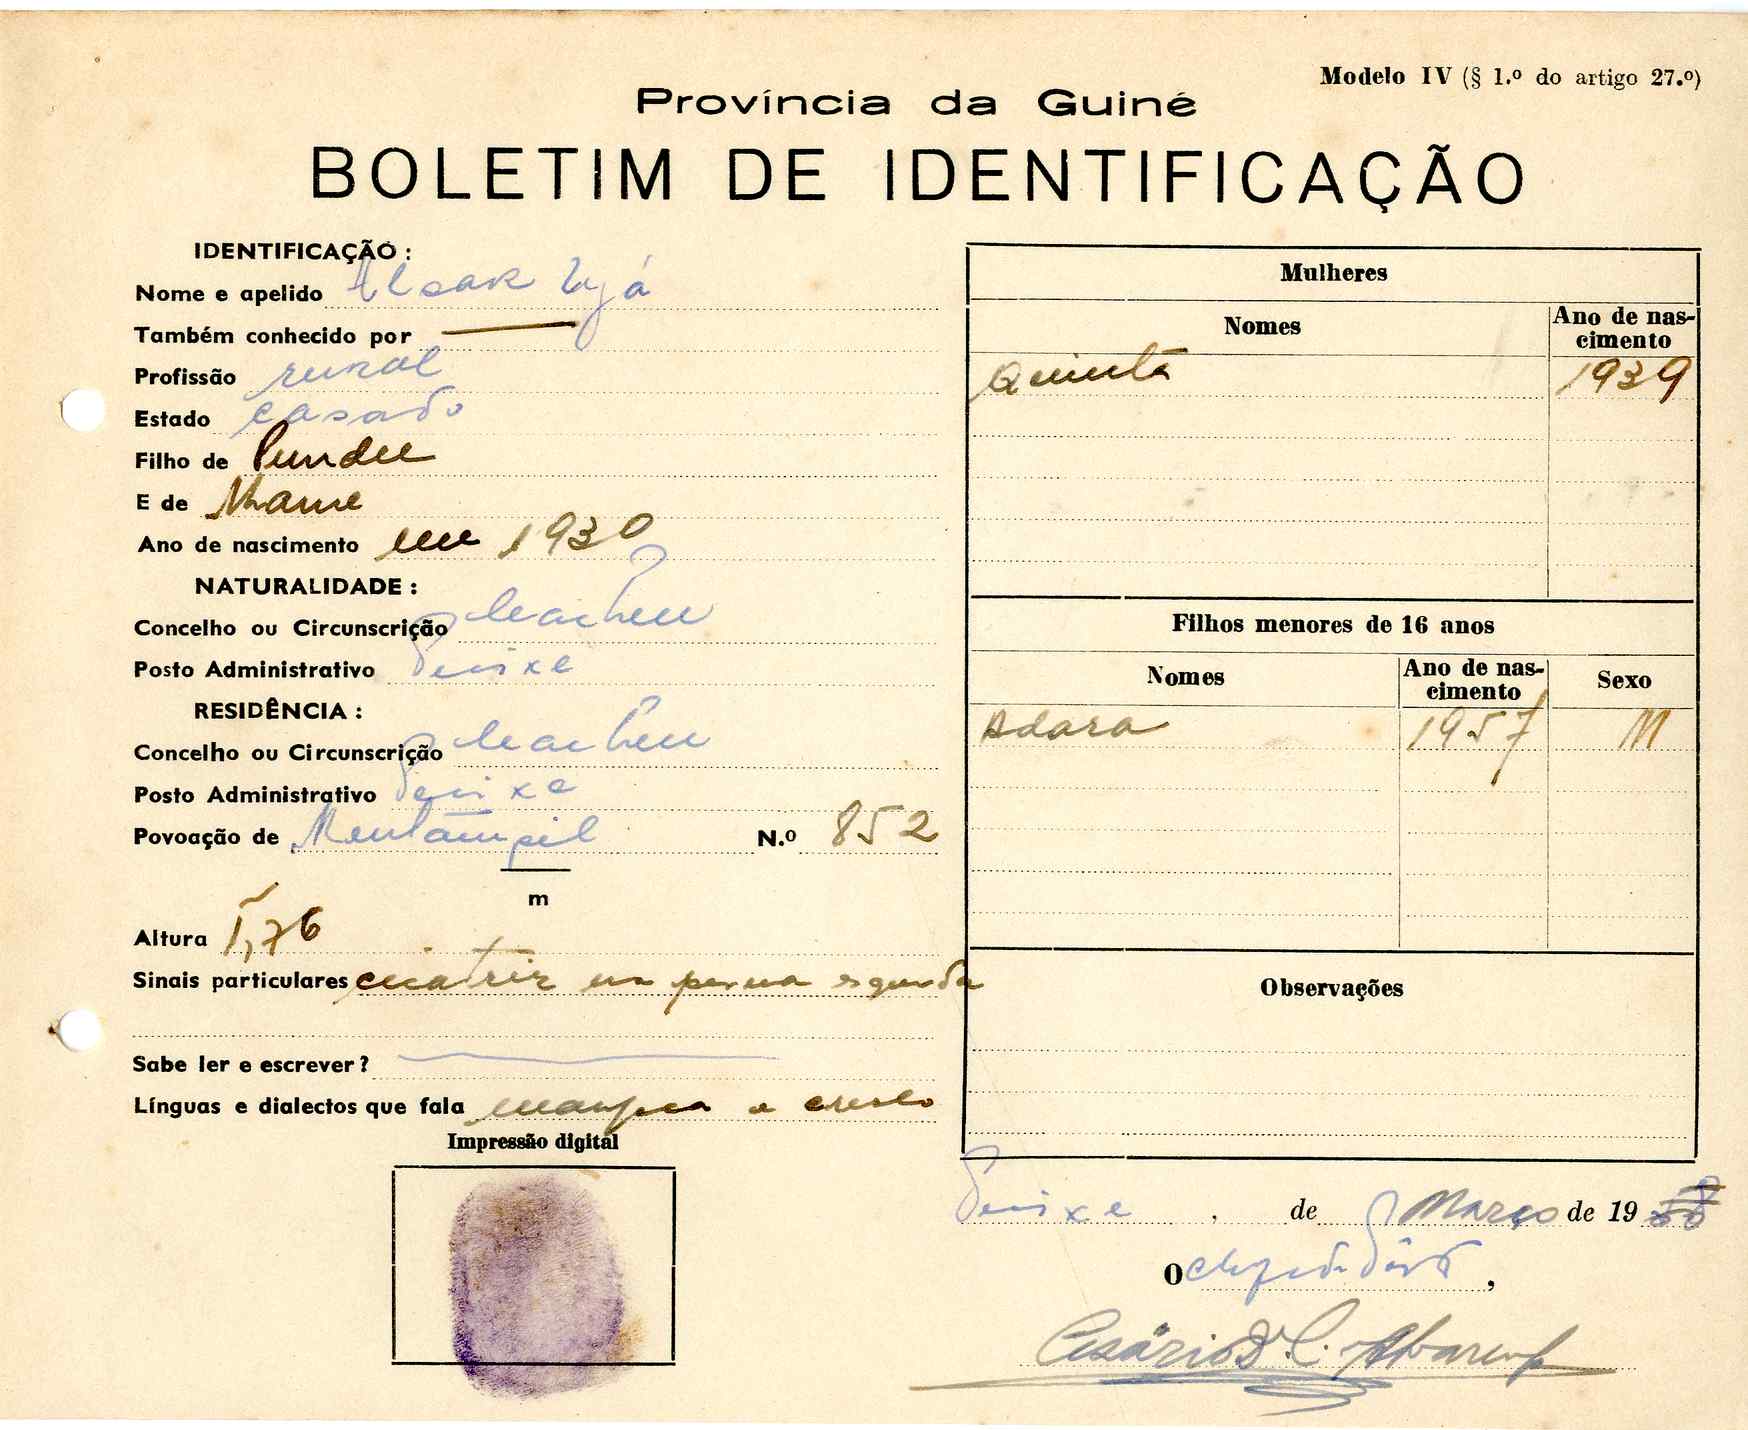 Modelo IV (§ 1.º do artigo 27.º)
Província da Guiné
BOLETIM DE IDENTIFICAÇÃO
IDENTIFICAÇÃO :
Nome e apelido
Também conhecido por
Profissão rural
Estado casado
Filho de
E de
Ano de nascimento em 1930
NATURALIDADE :
Concelho ou Circunscrição Cacheu
Posto Administrativo
RESIDÊNCIA :
Concelho ou Circunscrição Cacheu
Posto Administrativo
Povoação de N.º 852
m
Altura 1,76
Sinais particulares cicatriz na perna
Sabe ler e escrever?
Línguas e dialectos que fala e
Impressão digital
Mulheres
Nomes Ano de nas-
cimento
Quinta 1939
Filhos menores de 16 anos
Nomes Ano de nas-
cimento Sexo
Adara 1957 M
Observações
, de Março de 19
O Chefe de Pôsto ,